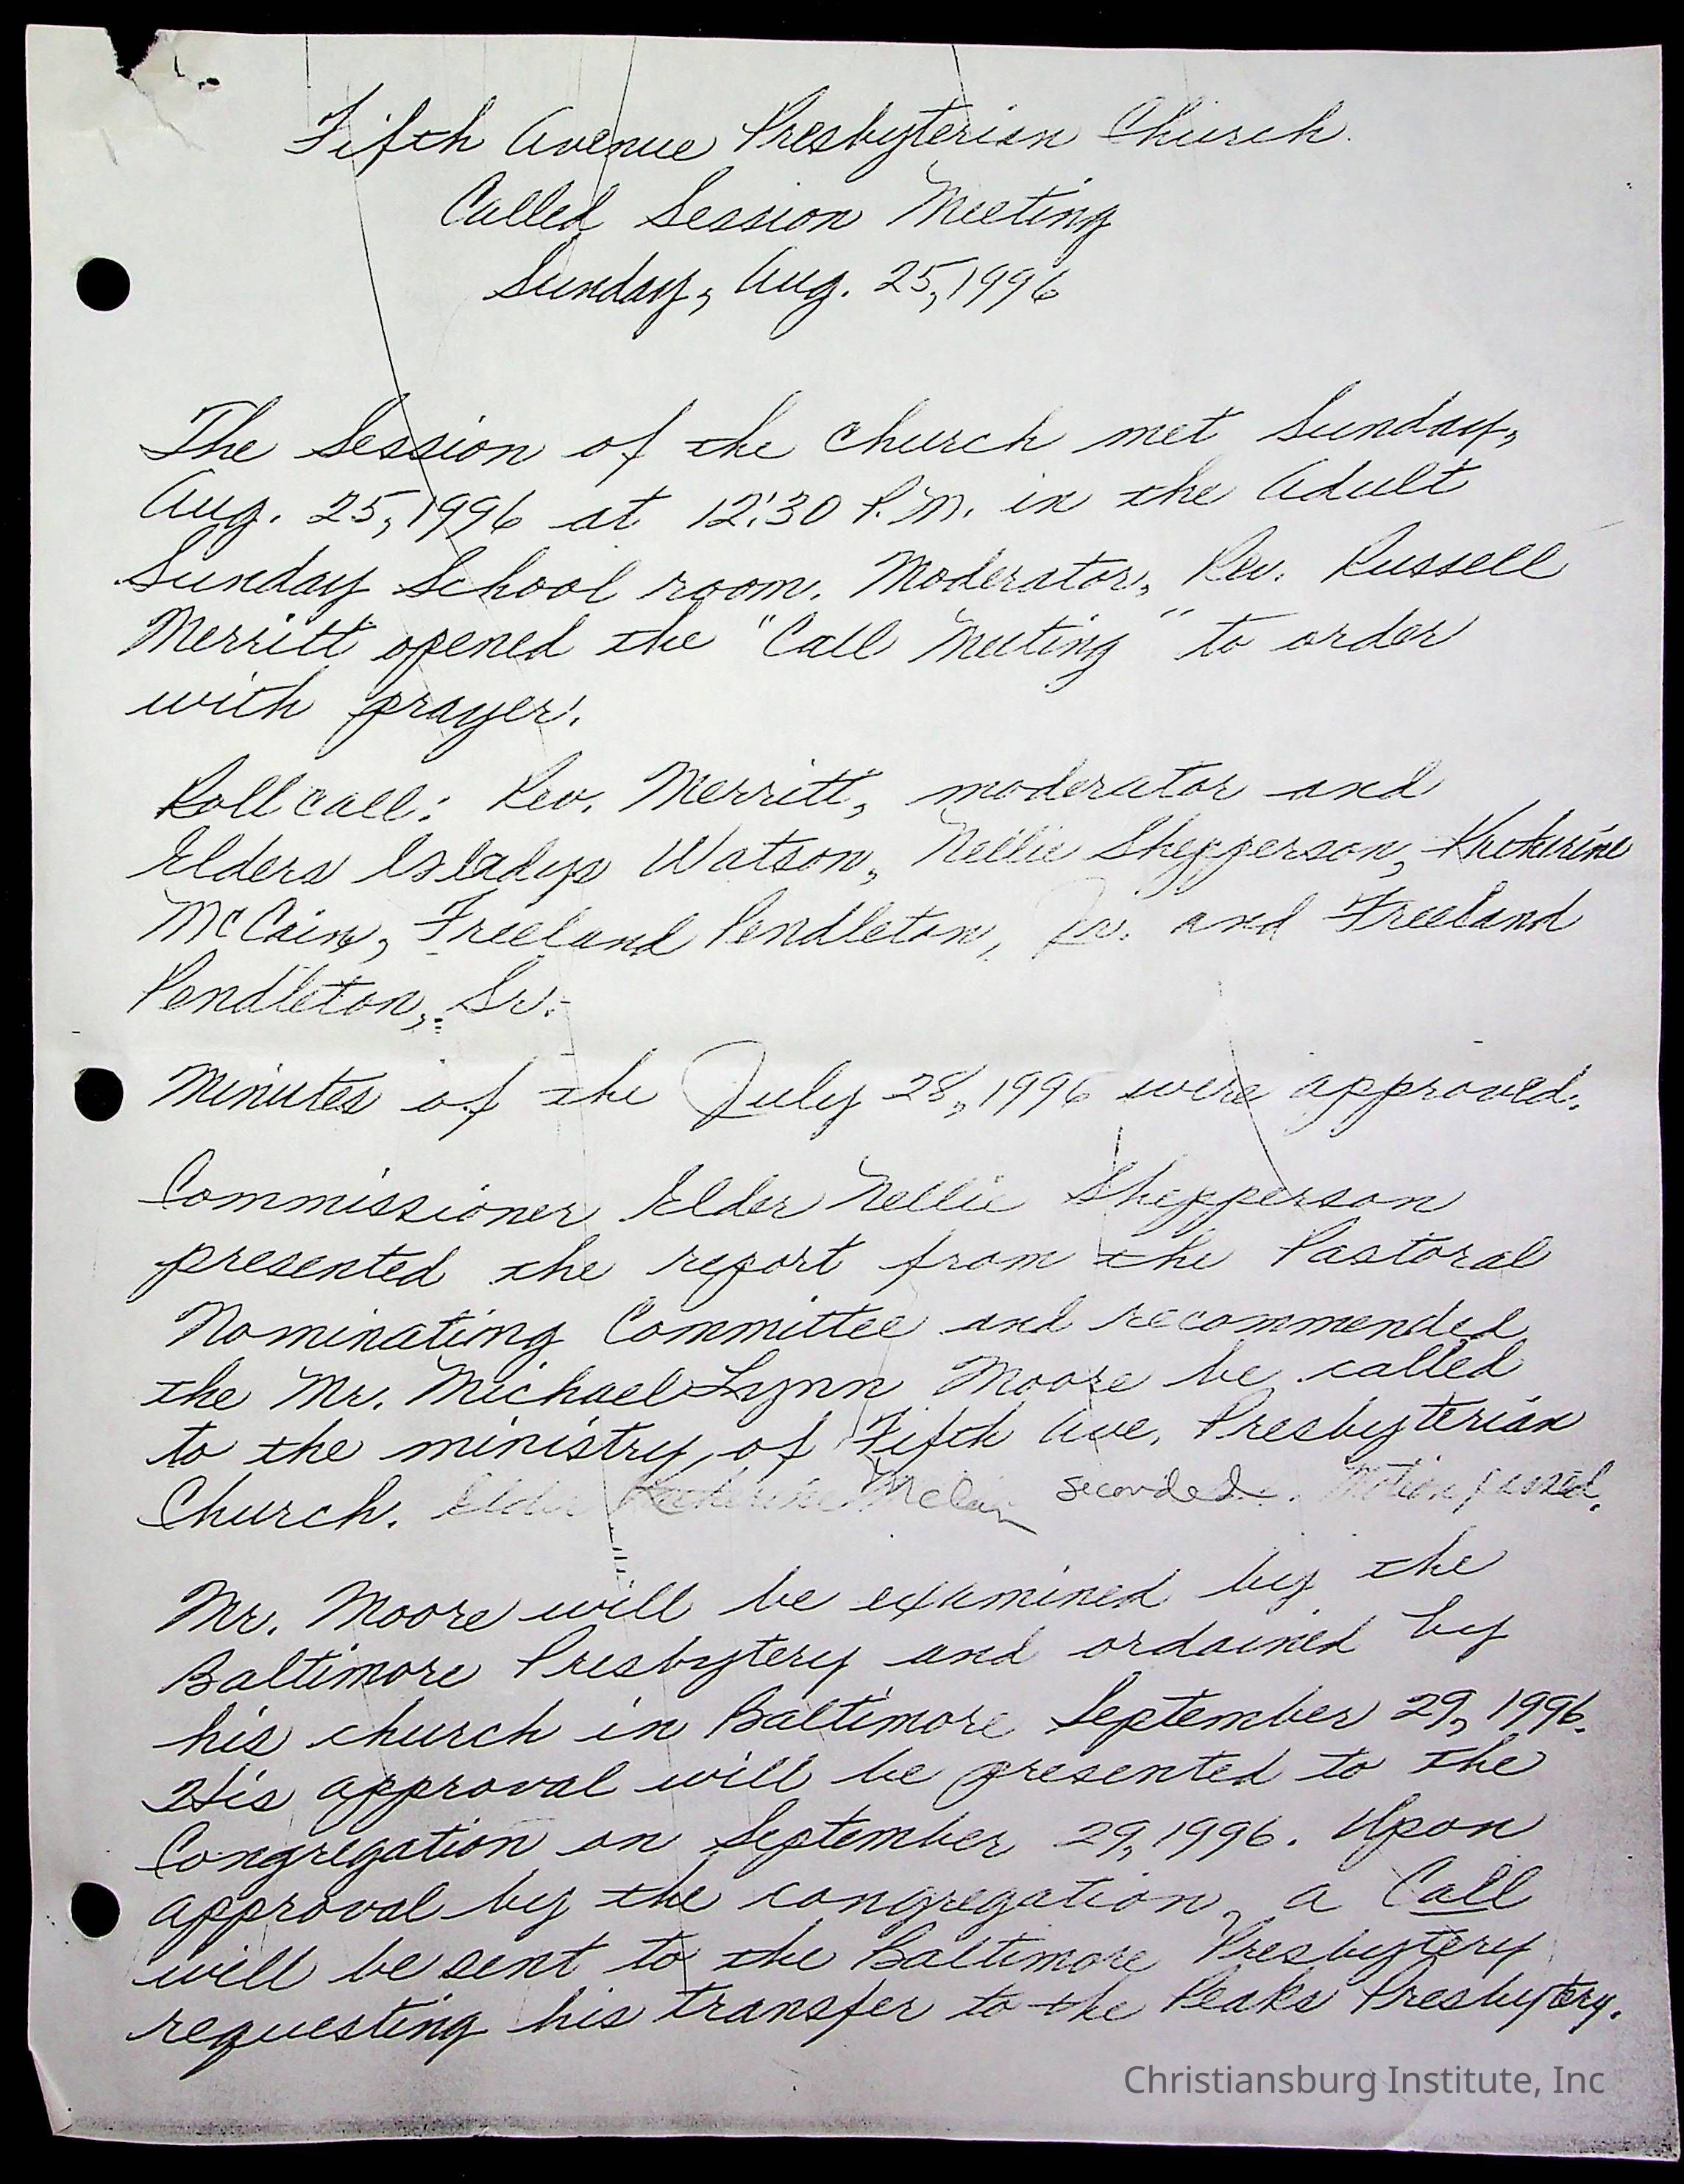 Fifth Avenue Presbyterian Church.
Called Session Meeting
Sunday, Aug. 25, 1996
The Session of the church met Sunday,
Aug. 25, 1996 at 12:30 P.M. in the Adult
Sunday School room. Moderator, Rev. Russell
Merritt opened the "Call Meeting" to order
with prayer.
Roll call: Rev. Merritt, moderator and
Elders Gladys Watson, Nellie Shepperson, Katherine
McCain, Freeland Pendleton, Jr. and Freeland
Pendleton, Sr.
Minutes of the July 28, 1996 were approved.
Commissioner Elder Nellie Shepperson
presented the report from the Pastoral
Nominating Committee and recommended
the Mr. Michael Lynn Moore be called
to the ministry of Fifth Ave. Presbyterian
Church. Elder Katherine McCain seconded. Motion passed.
Mr. Moore will be examined by the
Baltimore Presbytery and ordained by
his church in Baltimore September 29, 1996.
His approval will be presented to the
Congregation on September 29, 1996. Upon
approval by the congregation, a Call
will be sent to the Baltimore Presbytery
requesting his transfer to the Peaks Presbytery.
Christiansburg Institute, Inc